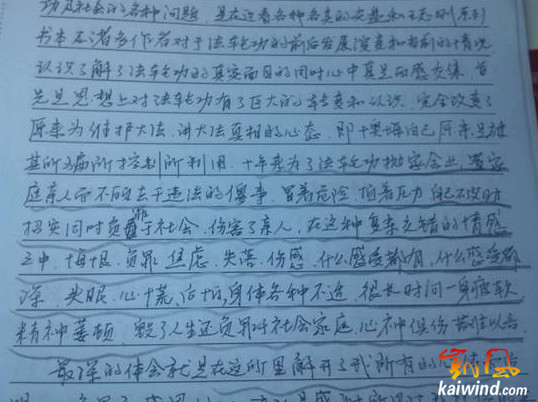 功及社会的各种问题，是在这看各种各类的光盘和王志刚系列
书本不诸多作者对于法轮功的前后发展演变和当前的情况
认识了解了法轮功的真实面目的同时心中真是百感交集，首
先是思想上对法轮功有了巨大的转变和认识，完全改变了
原来为维护大法，讲大法真相的心态，即十奥悔自己原来是被
其所所控制所利用，十年来为了法轮功抛家舍业，置家
庭亲人而不顾去干违法的傻事，冒着危险，顶着压力自己
招实同时负罪于社会，伤害了亲人，在这种复杂交错的情感
之中，悔恨、负罪、焦虑、失落、伤感，什么感受都有，什么感受都
深，失眠、心慌、后怕，身体各种不适，很长时间一身疲软，
精神萎顿，毁了人生还负罪于社会家庭，心神俱伤苦难以言
最深的体会就是在这所里解开了我所有的
凯风
kaiwind.com